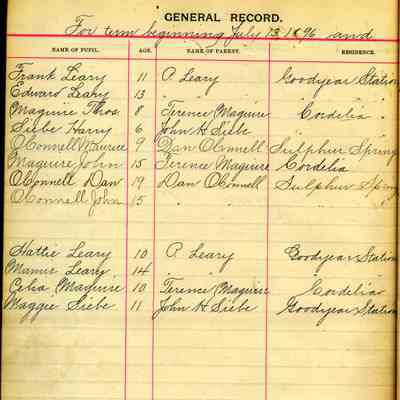 GENERAL RECORD.
For term beginning July 13 1896 and
NAME OF PUPIL. AGE. NAME OF PARENT. RESIDENCE.
Frank Leary 11 P. Leary Goodyear Station
Edward Leahy 13 " " "
Maguire Thos. 8 Terence Maguire Cordelia "
Siebe Harry 6 John H Siebe
O'Connell Maurice 9 Dan O'Connell Sulphur Spring
Maguire John 15 Terence Maguire Cordelia
O'Connell Dan 19 Dan O'Connell Sulphur Spring
O'Connell John 15 " " "
Hattie Leary 10 P. Leary Goodyear Station
Mamie Leary 14
Celia Maguire 10 Terence Maguire Cordelia
Maggie Siebe 11 John H Siebe Goodyear Station